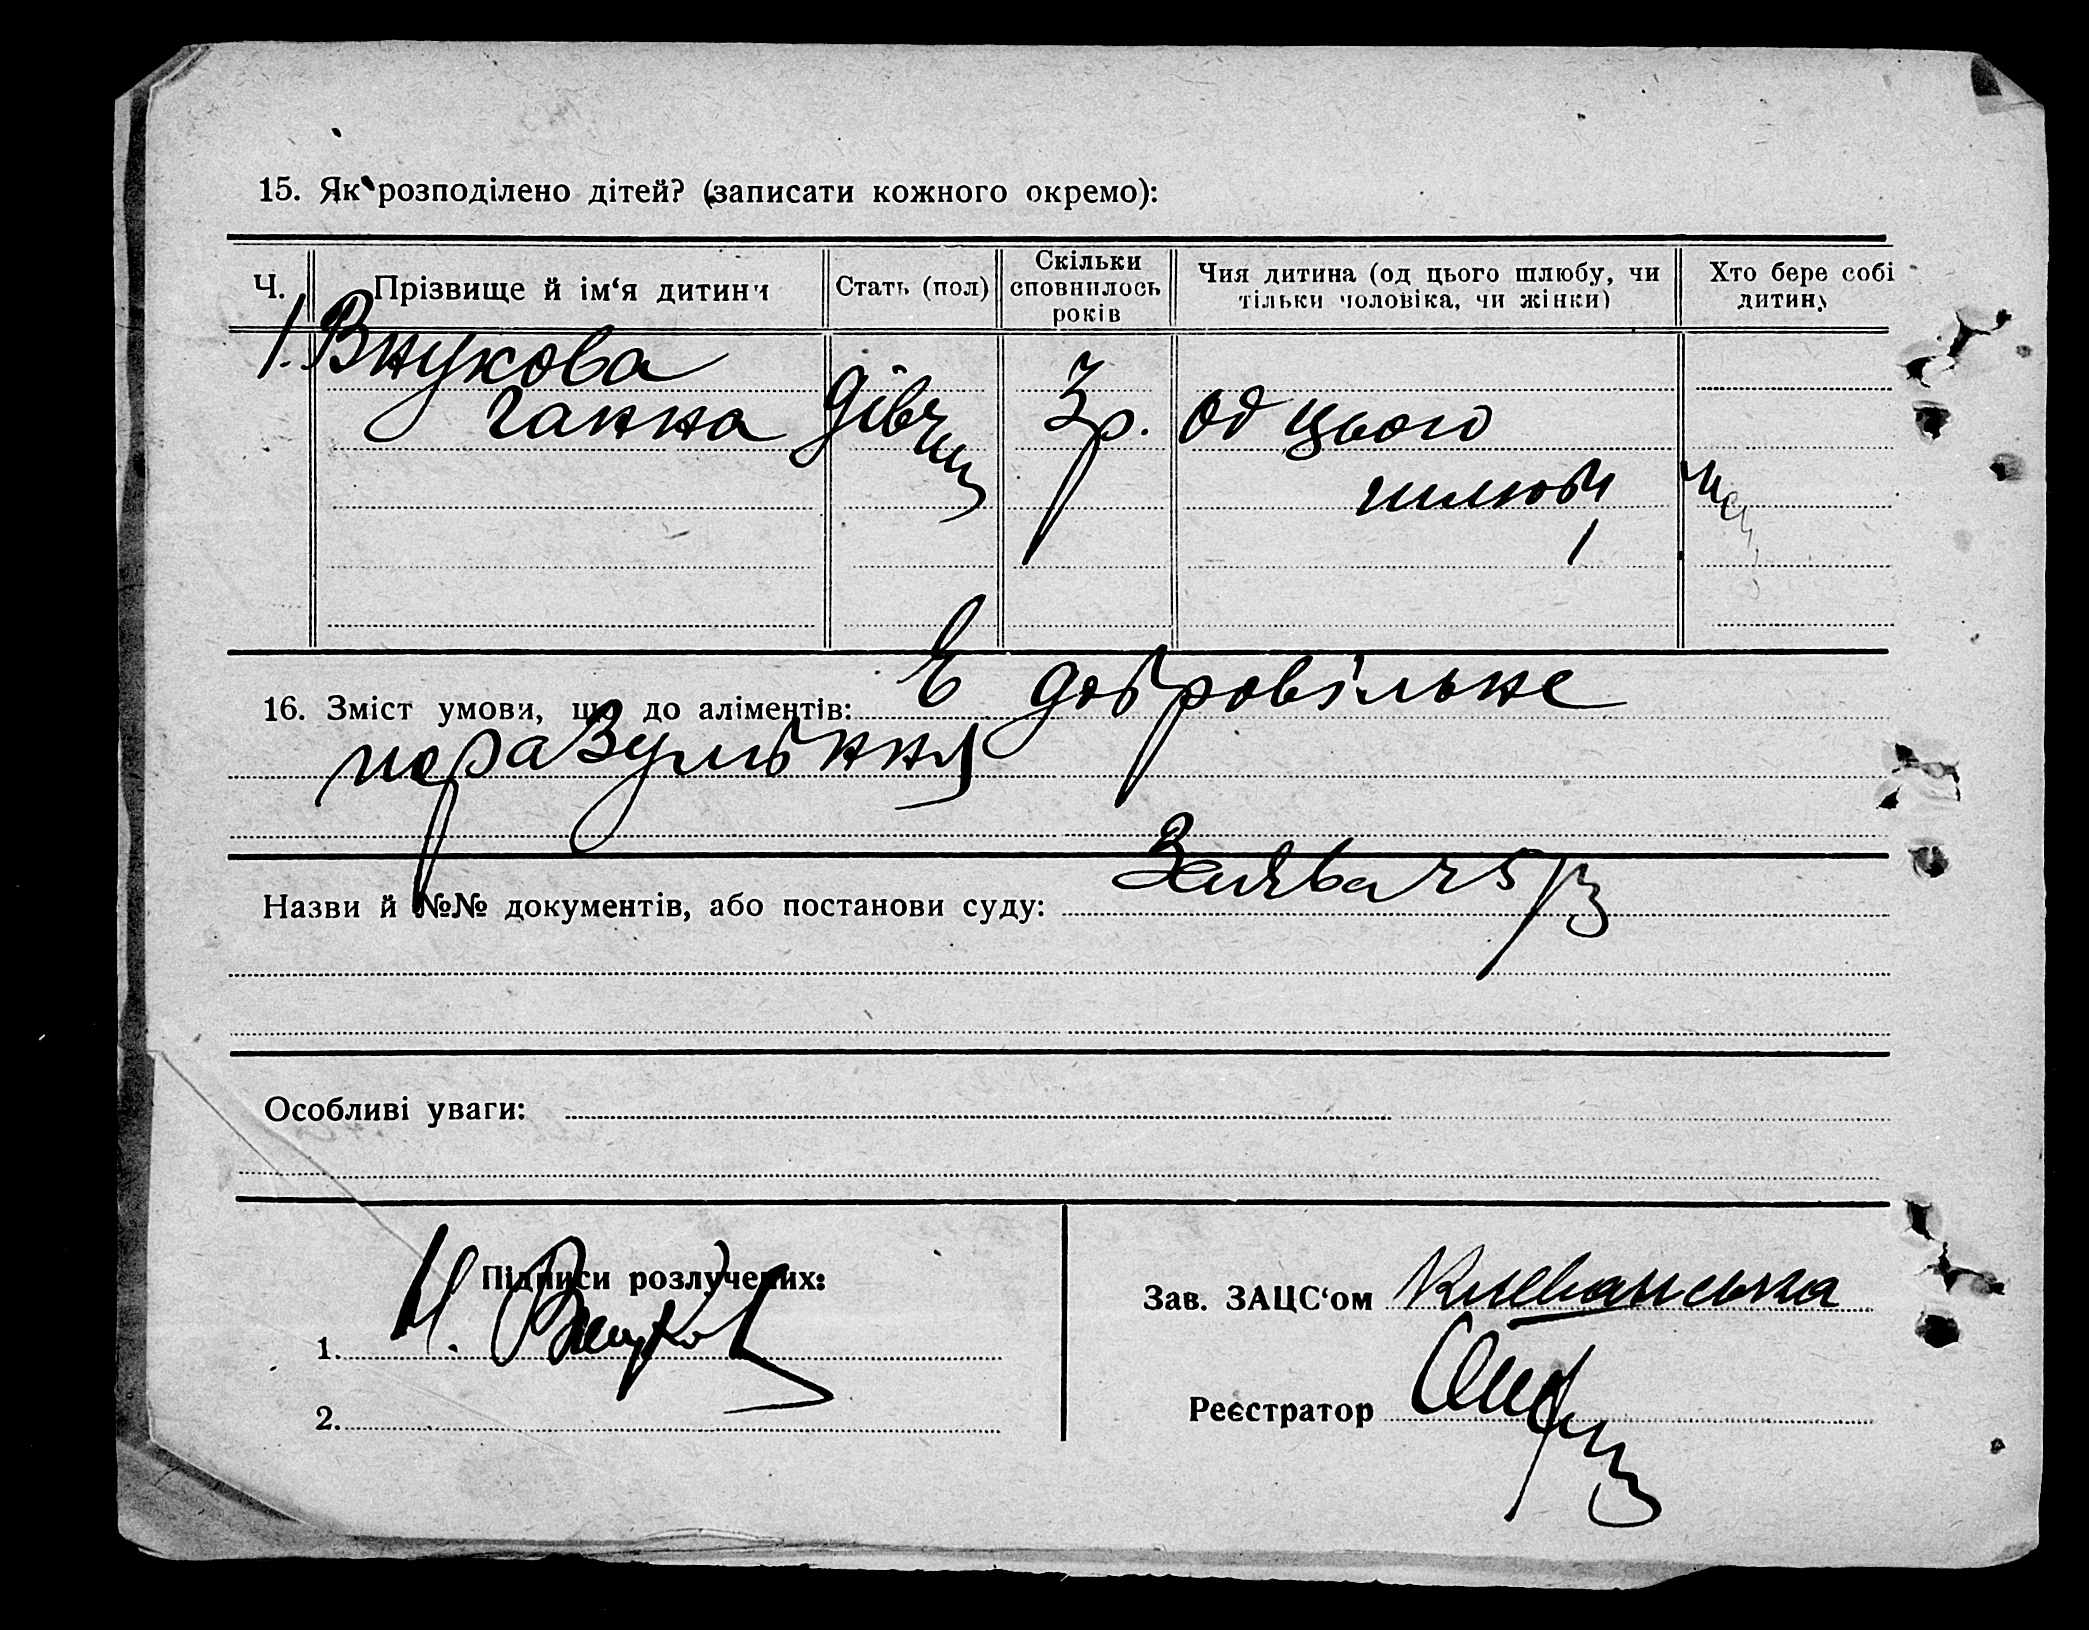 15. Як розподілено дітей? (записати кожного окремо):
Ч.
Прізвище й ім‘я дитини
Стать (пол)
Скільки
сповнилось
років
Чия дитина (од цього шлюбу, чи
тільки чоловіка, чи жінки)
Хто бере собі
дитину
1. Внукова
Ганна
дівчин
3 р.
од цього
шлюбу
16. Зміст умови, що до аліментів: Є добровільне
поразуминня
Назви й №№ документів, або постанови суду:
Особливі уваги:
Підписи розлучених:
1. И. Внуков
2.
Зав. ЗАЦС‘ом
Реєстратор